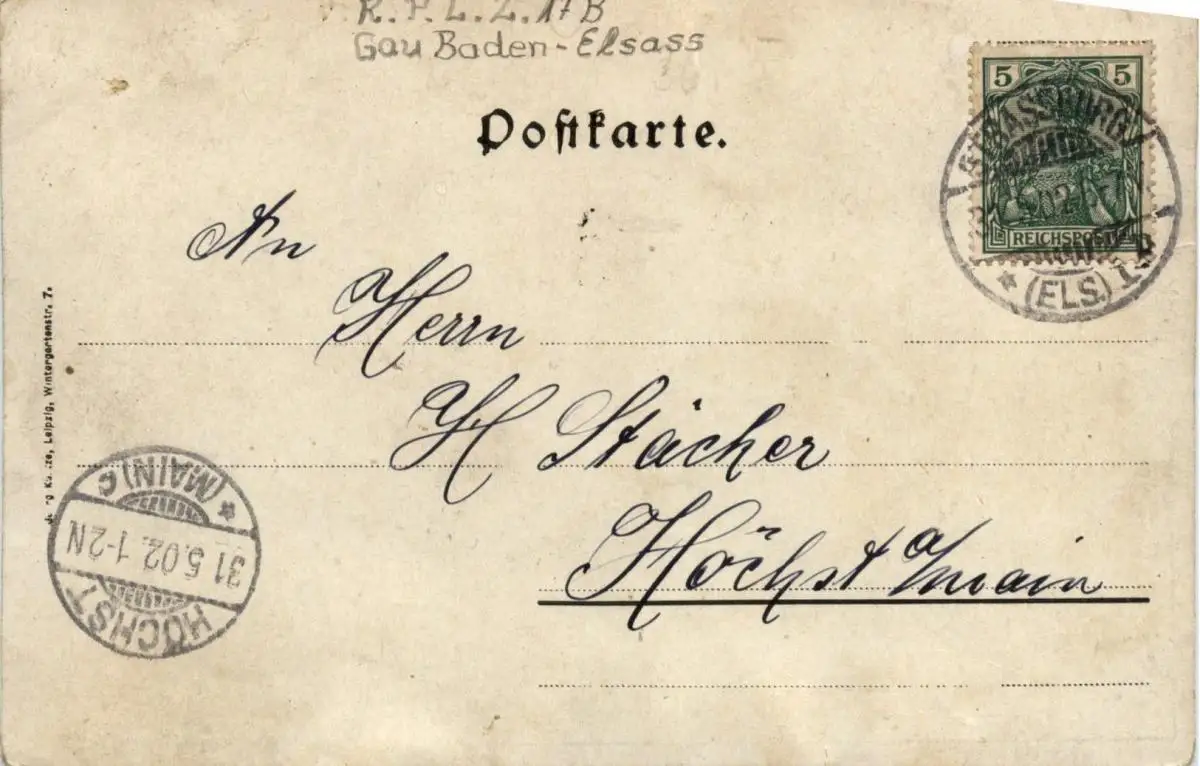 R.P.L.Z.17B
Gau Baden-Elsass
Postkarte.
5 5
REICHSPOST
STRASSBURG
(ELS.) 1
An
Herrn
H Stächer
Höchst a/main
Leipzig, Wintergartenstr. 7.
* (MAIN) c
31 5.02. 1-2N
HÖCHST